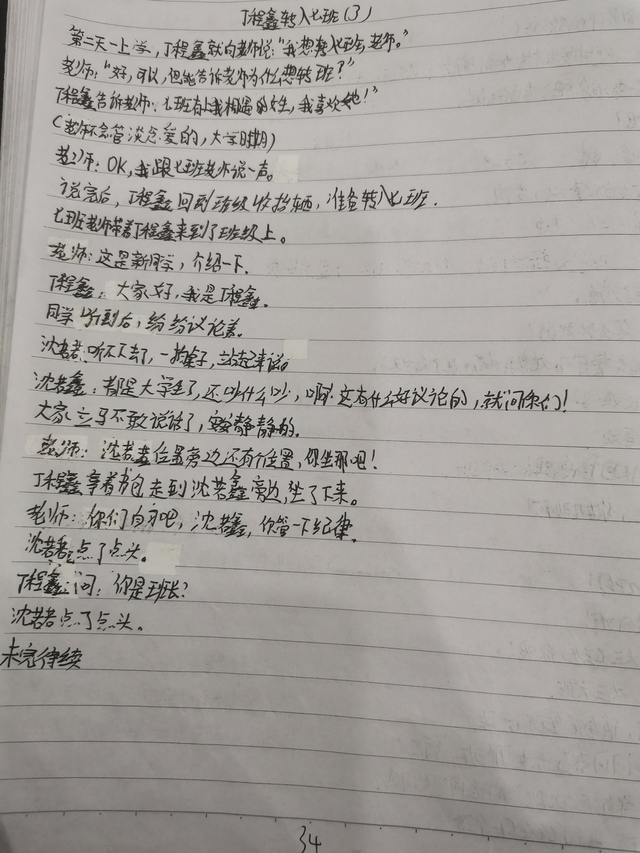 丁程鑫转入七班(3)
第二天一上学，丁程鑫就向老师说："我想转入七班，老师。"
老师："好，可以，但能告诉老师为什么想转班？"
丁程鑫告诉老师：七班有上我相遇的女生，我喜欢她！"
(老师不会管谈恋爱的，大学时期)
老师：OK，我跟七班老师说一声。
说完后，丁程鑫回到班级收拾东西，准备转入七班．
七班老师带着丁程鑫来到了班级上。
老师：这是新同学，介绍一下．
丁程鑫：大家好，我是丁程鑫。
同学听到后，纷纷议论着。
沈若鑫听不下去了，一拍桌子，站起来说。
沈若鑫：都是大学生了，还吵什么吵，啊，这有什么好议论的，就问你们！
大家立马不敢说话了，安安静静的。
老师：沈若鑫位置旁边还有个位置，你坐那吧！
丁程鑫拿着书包走到沈若鑫旁边，坐了下来。
老师：你们自习吧，沈若鑫，你管一下纪律。
沈若鑫点了点头。
丁程鑫问：你是班长？
沈若鑫点了点头。
未完待续
34